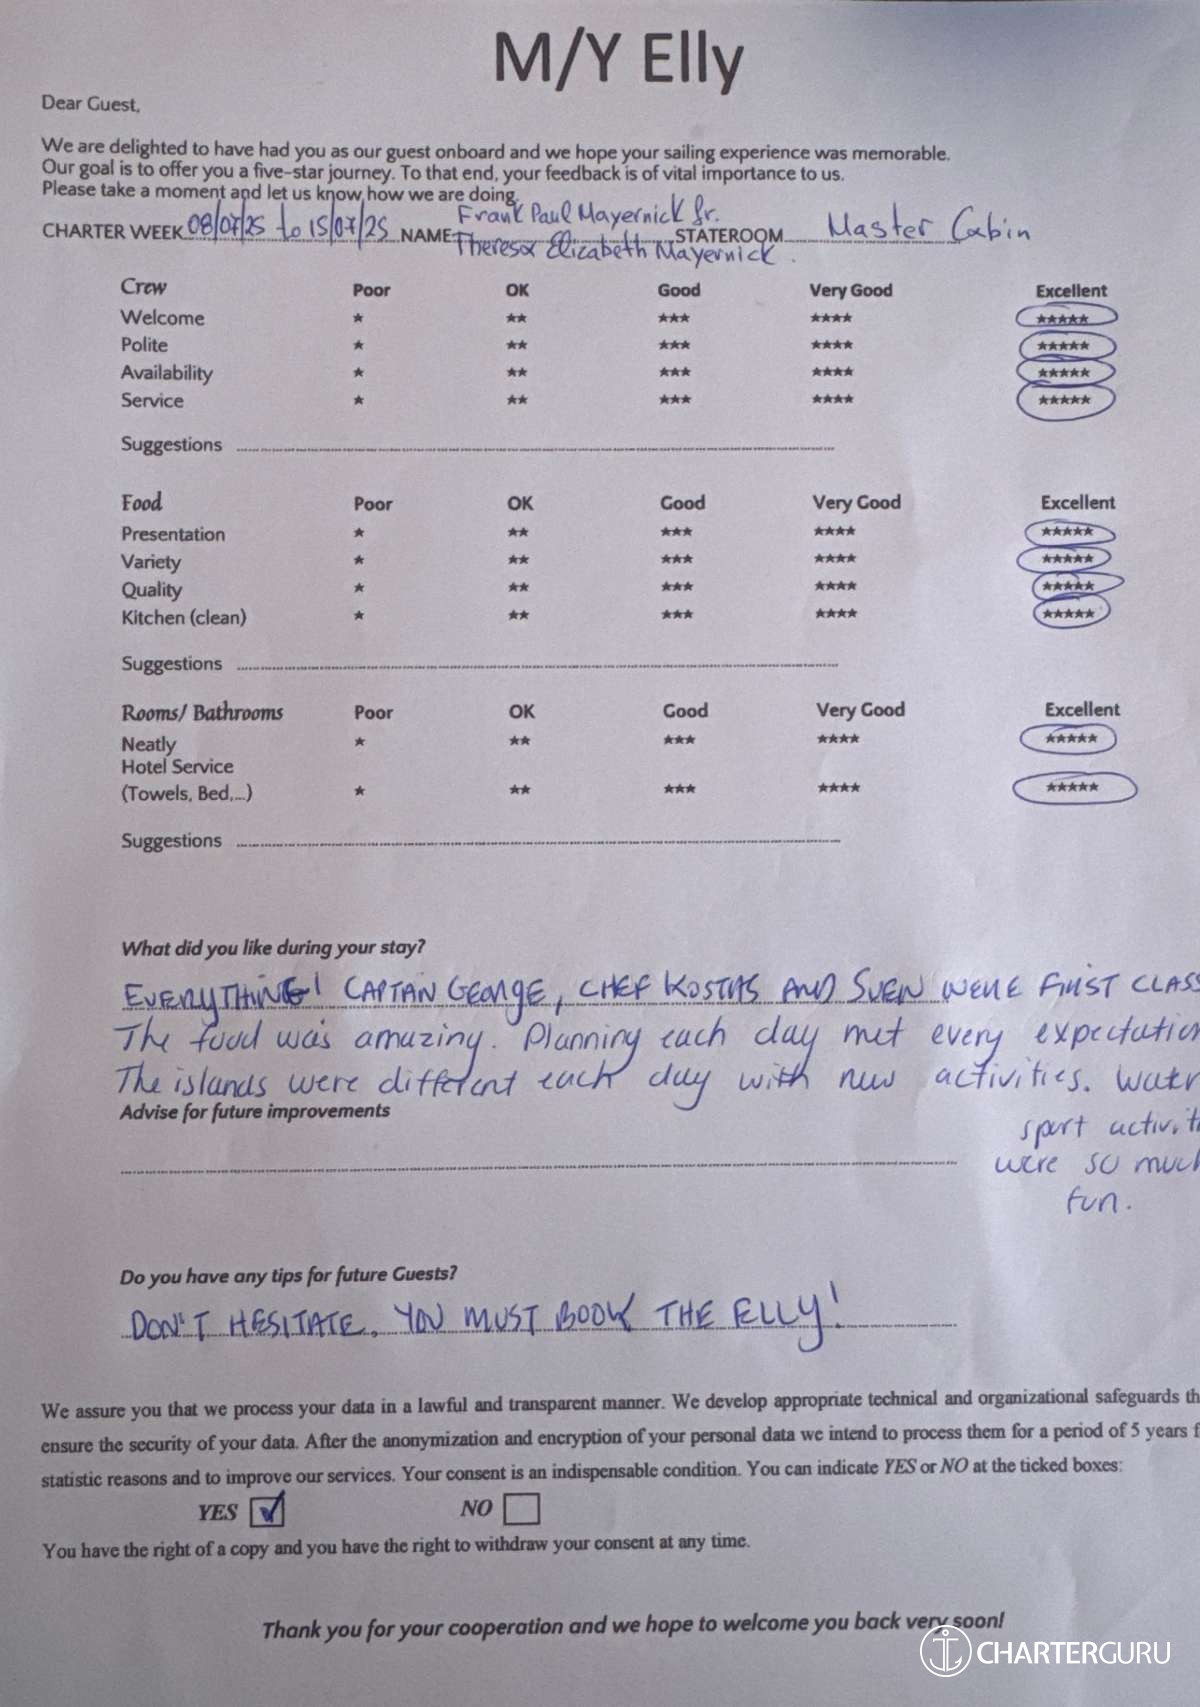 M/Y Elly
Dear Guest,
We are delighted to have had you as our guest onboard and we hope your sailing experience was memorable.
Our goal is to offer you a five-star journey. To that end, your feedback is of vital importance to us.
Please take a moment and let us know how we are doing.
Frank Paul Mayernick Jr.
CHARTER WEEK 08/07/25 to 15/07/25 NAME Theresa Elizabeth Mayernick. STATEROOM Master Cabin
Crew Poor OK Good Very Good Excellent
Welcome ★ ★★ ★★★ ★★★★ ★★★★★
Polite ★ ★★ ★★★ ★★★★ ★★★★★
Availability ★ ★★ ★★★ ★★★★ ★★★★★
Service ★ ★★ ★★★ ★★★★ ★★★★★
Suggestions
Food Poor OK Good Very Good Excellent
Presentation ★ ★★ ★★★ ★★★★ ★★★★★
Variety ★ ★★ ★★★ ★★★★ ★★★★★
Quality ★ ★★ ★★★ ★★★★ ★★★★★
Kitchen (clean) ★ ★★ ★★★ ★★★★ ★★★★★
Suggestions
Rooms/ Bathrooms Poor OK Good Very Good Excellent
Neatly ★ ★★ ★★★ ★★★★ ★★★★★
Hotel Service
(Towels, Bed,...) ★ ★★ ★★★ ★★★★ ★★★★★
Suggestions
What did you like during your stay?
EVERYTHING! CAPTAN GEORGE, CHEF KOSTAS AND SVEN WERE FIRST CLASS
The food was amazing. Planning each day met every expectation
The islands were different each day with new activities. Water
sport activit
were so much
fun.
Advise for future improvements
Do you have any tips for future Guests?
DON'T HESITATE, YOU MUST BOOK THE ELLY!
We assure you that we process your data in a lawful and transparent manner. We develop appropriate technical and organizational safeguards th
ensure the security of your data. After the anonymization and encryption of your personal data we intend to process them for a period of 5 years f
statistic reasons and to improve our services. Your consent is an indispensable condition. You can indicate YES or NO at the ticked boxes:
YES ☑ NO ☐
You have the right of a copy and you have the right to withdraw your consent at any time.
Thank you for your cooperation and we hope to welcome you back very soon!
CHARTERGURU